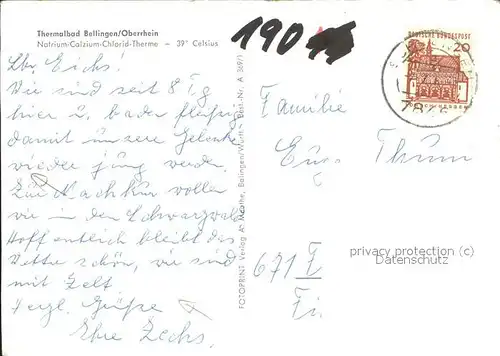 Thermalbad Bellingen/Oberrhein
Natrium-Calzium-Chlorid-Therme – 39° Celsius
190
DEUTSCHE BUNDESPOST
20
Wir sind seit 8 Tg
hier u. baden fleißig
damit unsere Gelenke
wieder jung werden.
Zur Nachkur wollen
wir in den Schwarzwald
Hoffentlich bleibt das
Wetter schön, wir sind
mit Zelt.
Herzl. Grüße
Familie
Thum
671
FOTOPRINT Verlag
Balingen/Württ. Best.-Nr. A 369/1
privacy protection (c)
Datenschutz